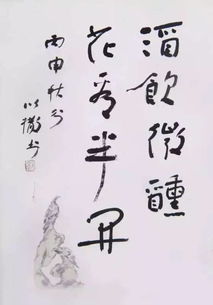 酒飲微醺
花看半開
丙申秋分
以徹书